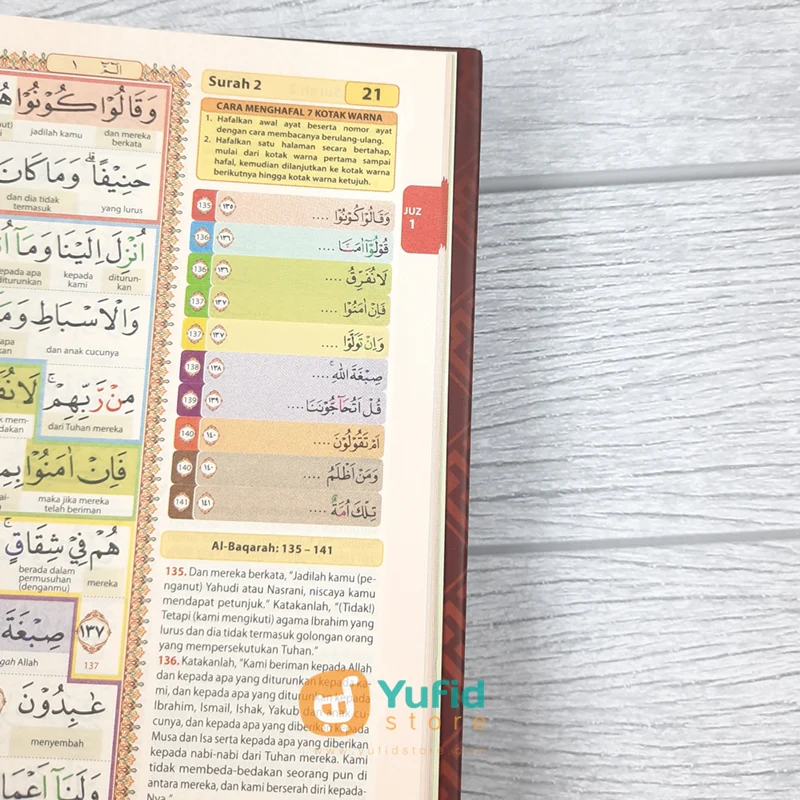 الٓمّٓ ١
Surah 2
21
CARA MENGHAFAL 7 KOTAK WARNA
1. Hafalkan awal ayat beserta nomor ayat
dengan cara membacanya berulang-ulang.
2. Hafalkan satu halaman secara bertahap,
mulai dari kotak warna pertama sampai
hafal, kemudian dilanjutkan ke kotak warna
berikutnya hingga kotak warna ketujuh.
JUZ
1
135 ١٣٥ وَقَالُوْا كُوْنُوْا ....
136 ١٣٦ قُوْلُوْٓا اٰمَنَّا ....
136 ١٣٦ لَا نُفَرِّقُ ....
137 ١٣٧ فَاِنْ اٰمَنُوْا ....
137 ١٣٧ وَاِنْ تَوَلَّوْا ....
138 ١٣٨ صِبْغَةَ اللّٰهِ ۚ ....
139 ١٣٩ قُلْ اَتُحَاۤجُّوْنَنَا ....
140 ١٤٠ اَمْ تَقُوْلُوْنَ ....
140 ١٤٠ وَمَنْ اَظْلَمُ ....
141 ١٤١ تِلْكَ اُمَّةٌ ....
Al-Baqarah: 135 – 141
135. Dan mereka berkata, "Jadilah kamu (pe-
nganut) Yahudi atau Nasrani, niscaya kamu
mendapat petunjuk." Katakanlah, "(Tidak!)
Tetapi (kami mengikuti) agama Ibrahim yang
lurus dan dia tidak termasuk golongan orang
yang mempersekutukan Tuhan."
136. Katakanlah, "Kami beriman kepada Allah
dan kepada apa yang diturunkan kepada ka-
mi, dan kepada apa yang diturunkan kepada
Ibrahim, Ismail, Ishak, Yakub dan anak cu-
cunya, dan kepada apa yang diberikan kepada
Musa dan Isa serta kepada apa yang diberikan
kepada nabi-nabi dari Tuhan mereka. Kami
tidak membeda-bedakan seorang pun di
antara mereka, dan kami berserah diri kepada-
Nya."
وَقَالُوْا كُوْنُوْا
dan mereka berkata
jadilah kamu
حَنِيْفًاۗ وَمَا كَانَ
yang lurus
dan dia tidak termasuk
اُنْزِلَ اِلَيْنَا وَمَآ
diturun-kan
kepada kami
kepada apa diturunkan
وَالْاَسْبَاطِ وَمَآ
dan anak cucunya
apa
مِنْ رَّبِّهِمْۚ لَا
dari Tuhan mereka
فَاِنْ اٰمَنُوْا
maka jika mereka telah beriman
هُمْ فِيْ شِقَاقٍۚ
mereka
berada dalam permusuhan (denganmu)
١٣٧ صِبْغَةَ
137
Allah
عٰبِدُوْنَ
menyembah
وَلَنَآ اَعْمَا
Yufid
store
www.yufidstore.com